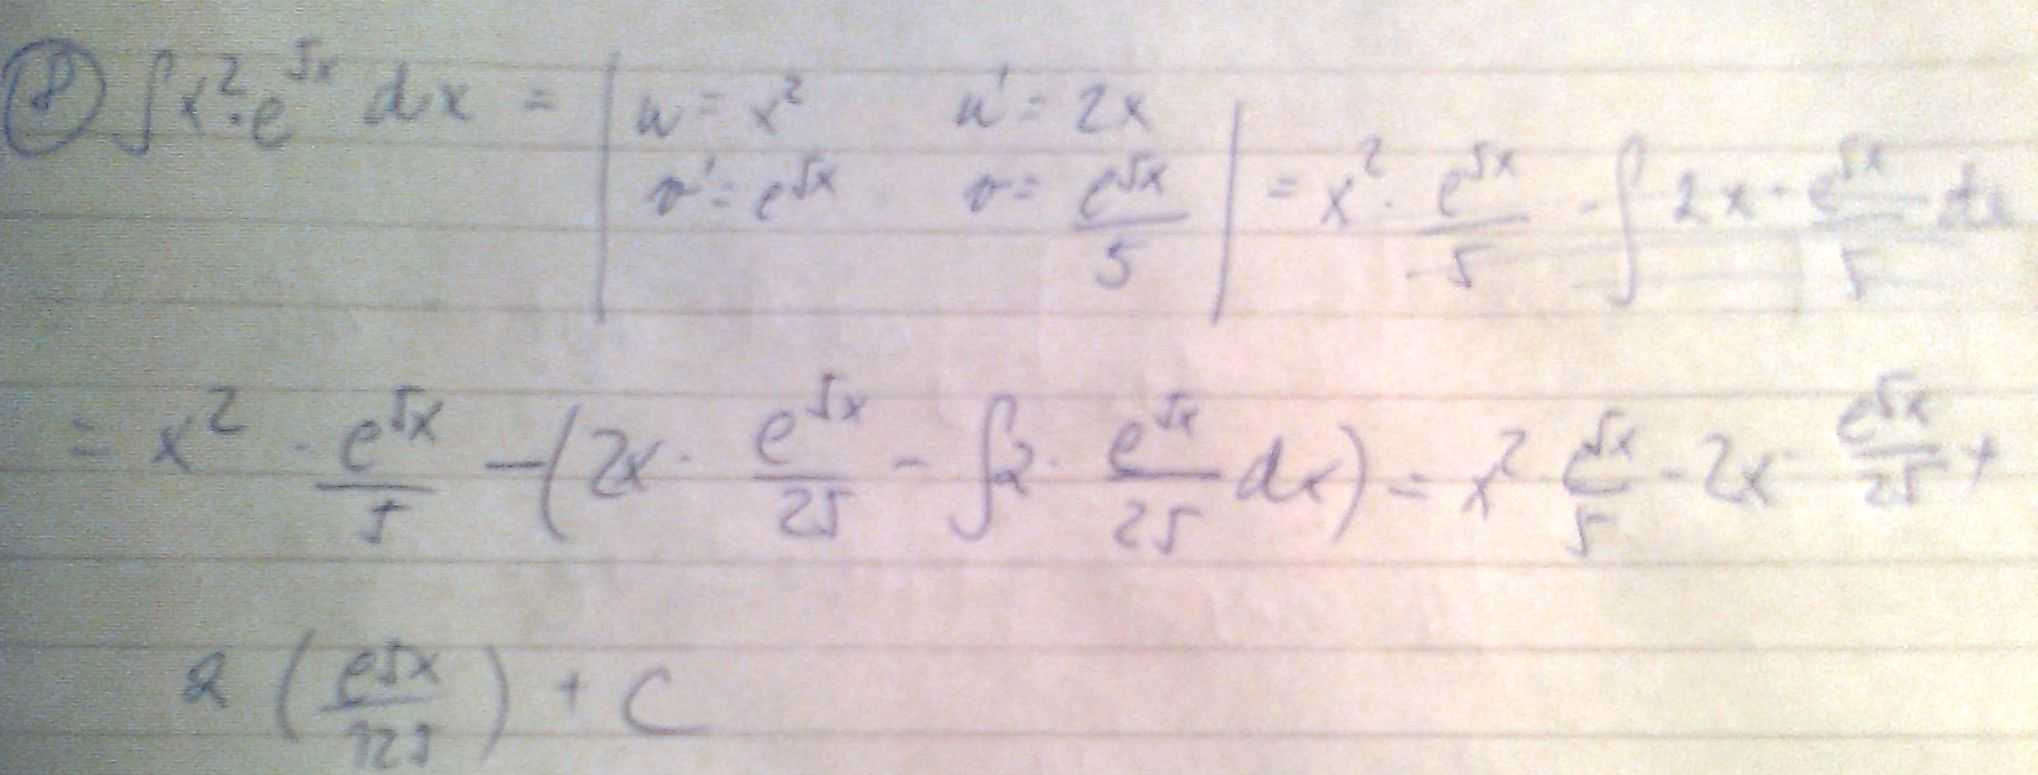 ⑧ ∫x²·e^{5x} dx = | u = x² u' = 2x v' = e^{5x} v = e^{5x}/5 | = x² · e^{5x}/5 - ∫ 2x · e^{5x}/5 dx
= x² · e^{5x}/5 - (2x · e^{5x}/25 - ∫2 · e^{5x}/25 dx) = x² e^{5x}/5 - 2x · e^{5x}/25 +
2 (e^{5x}/125) + C